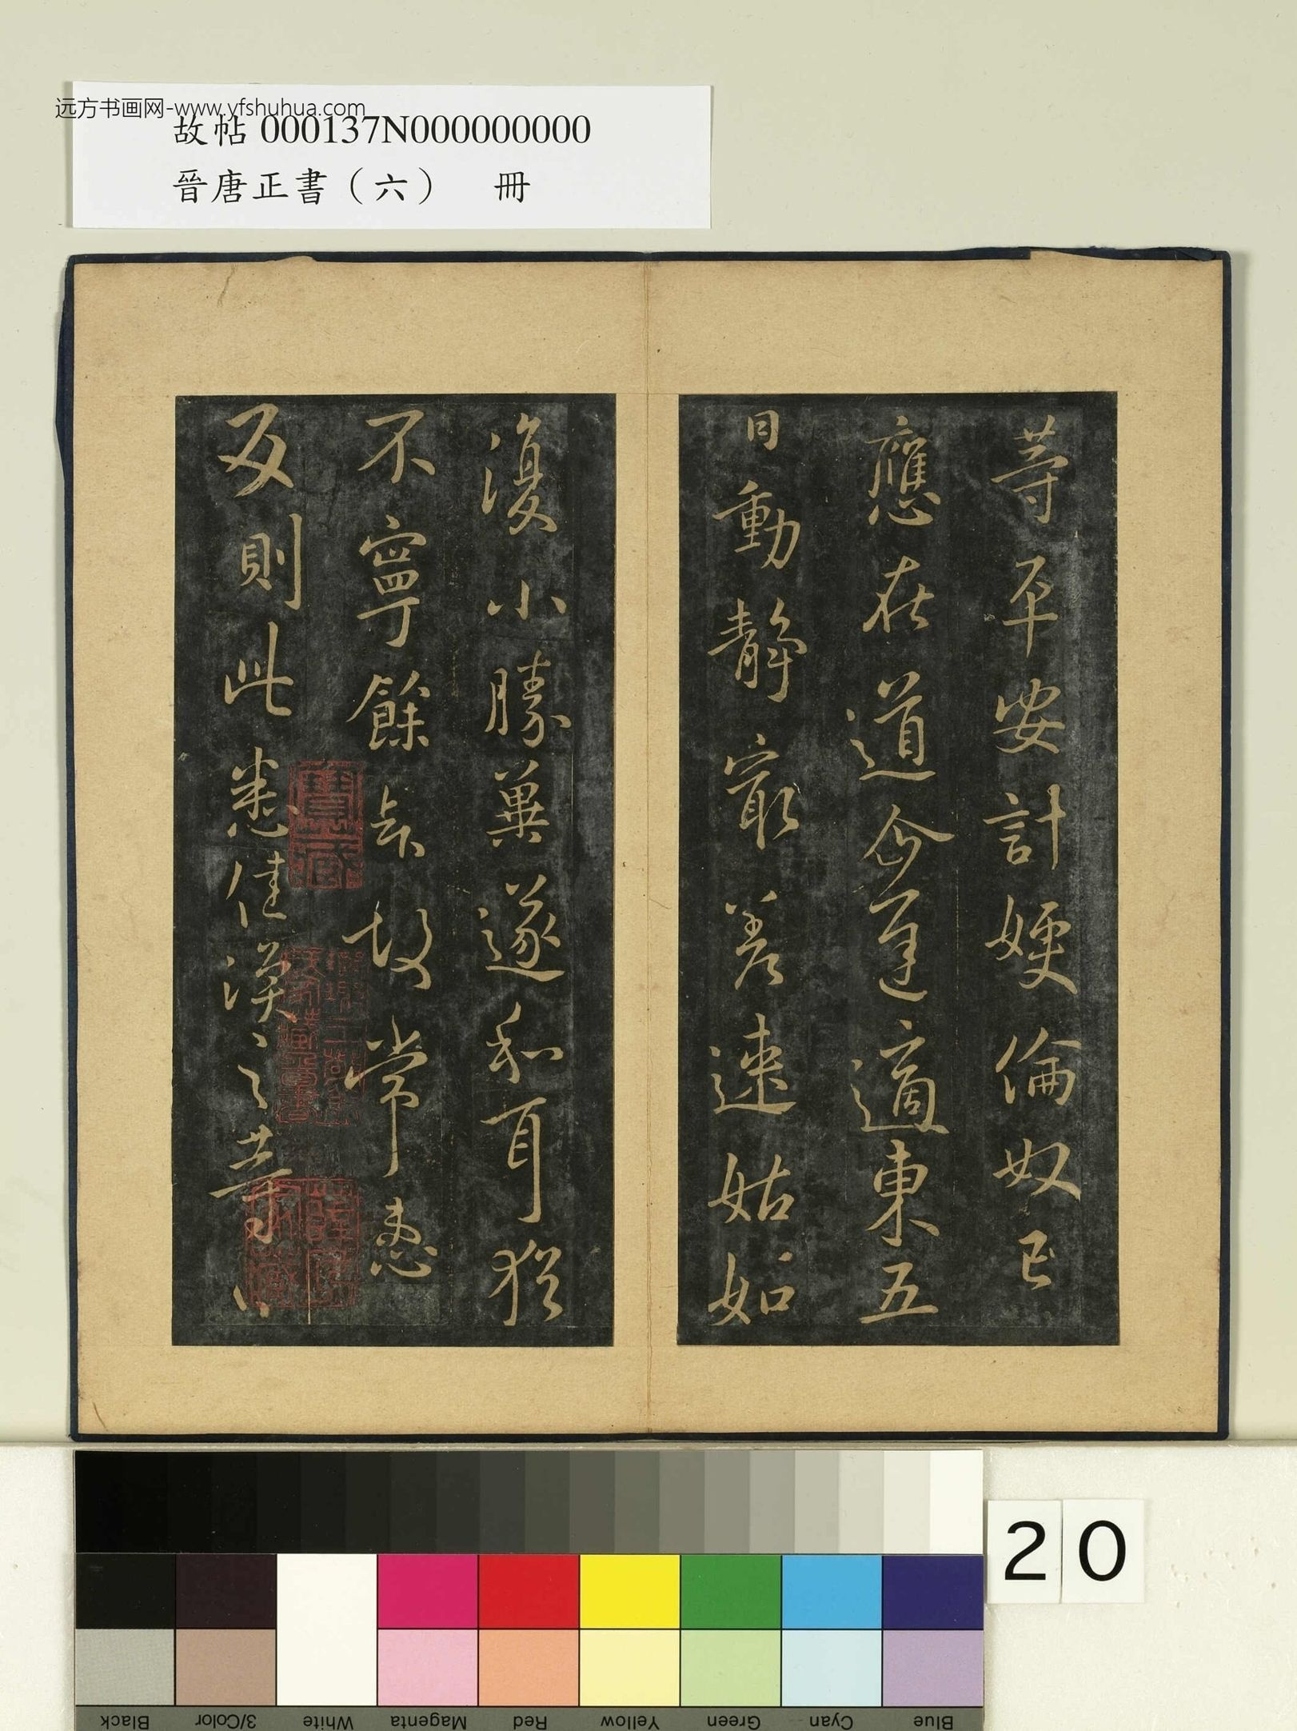 远方书画网-www.yfshuhua.com
故帖 000137N000000000
晉唐正書（六） 冊
等平安計㛐倫奴已
應在道企遲適東五
目動靜最差速姑如
復小勝冀遂和耳猶
不寧餘亦故常患
反則此悉佳漢之等
寶藏
20
Black
3/Color
White
Magenta
Red
Yellow
Green
Cyan
Blue